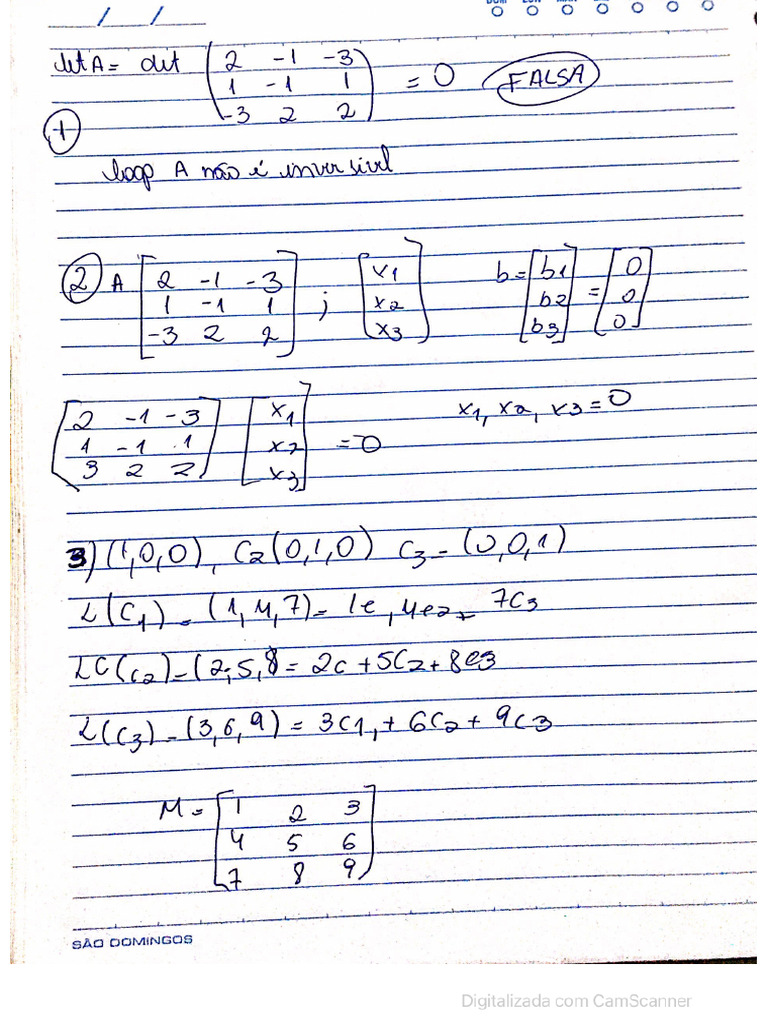 DOM
det A = det (2 -1 -3
1 -1 1
-3 2 2) = 0 FALSA
1
logo A não é inversível
2 A [2 -1 -3
1 -1 1
-3 2 2] ; [x1
x2
x3] b = [b1
b2
b3] = [0
0
0]
[2 -1 -3
1 -1 1
3 2 2] [x1
x2
x3] = 0 x1, x2, x3 = 0
3) (1,0,0), C2(0,1,0) C3 - (0,0,1)
L(C1) - (1,4,7) = 1e, 4e2 + 7C3
LC(C2) - (2,5,8 = 2c + 5C2 + 8e3
L(C3) - (3,6,9) = 3C1, + 6C2 + 9C3
M = [1 2 3
4 5 6
7 8 9]
SÃO DOMINGOS
Digitalizada com CamScanner